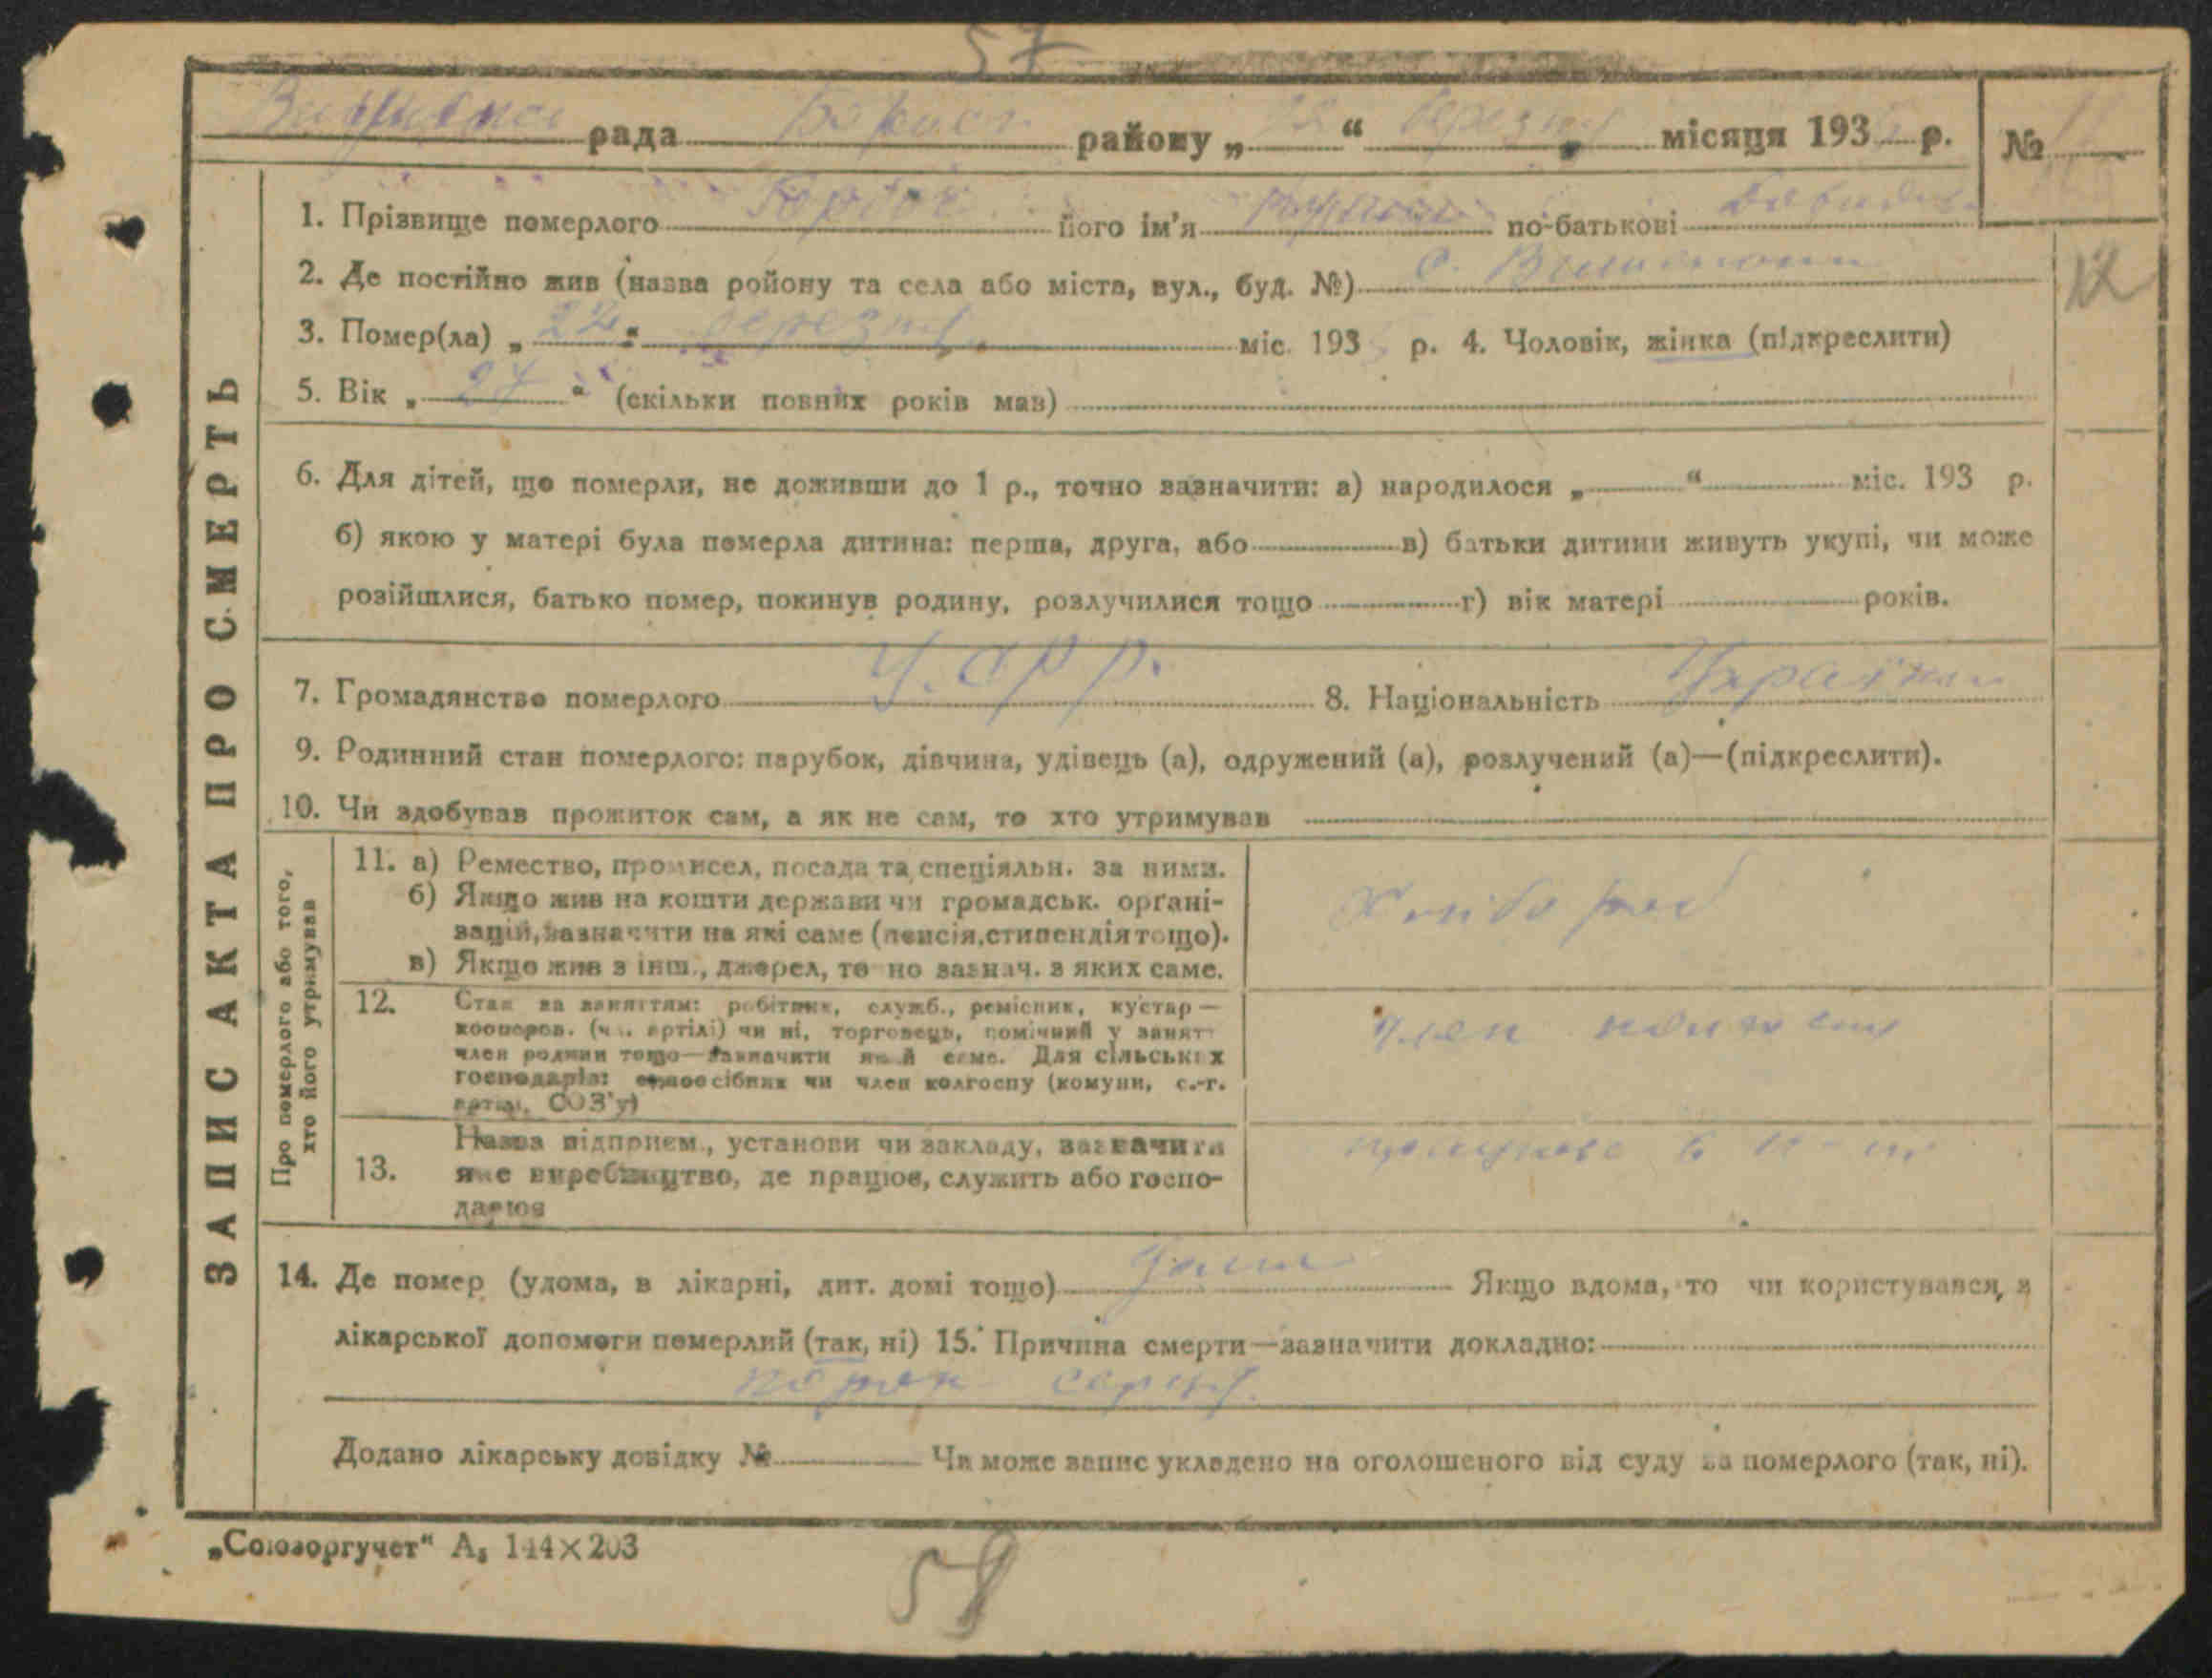 57
рада району „ 22 “ березня місяця 193 р. № 11
1. Прізвище померлого його ім'я по-батькові
2. Де постійно жив (назва ройону та села або міста, вул., буд. №) с.
12
3. Помер(ла) „ 22 “ березня міс. 193 р. 4. Чоловік, жінка (підкреслити)
5. Вік „ 27 “ (скільки повних років мав)
6. Для дітей, що померли, не доживши до 1 р., точно зазначити: а) народилося „ “ міс. 193 р.
б) якою у матері була померла дитина: перша, друга, або в) батьки дитини живуть укупі, чи може
розійшлися, батько помер, покинув родину, розлучилися тощо г) вік матері років.
7. Громадянство померлого У.СРР. 8. Національність Українка
9. Родинний стан померлого: парубок, дівчина, удівець (а), одружений (а), розлучений (а)—(підкреслити).
10. Чи здобував прожиток сам, а як не сам, то хто утримував
ЗАПИС АКТА ПРО СМЕРТЬ
Про померлого або того,
хто його утримував
11. а) Ремество, промисел, посада та спеціяльн. за ними.
б) Якщо жив на кошти держави чи громадськ. орґані-
зацій, зазначити на які саме (пенсія, стипендія тощо).
в) Якщо жив з інш., джерел, то но зазнач. з яких саме.
Хлібороб
12. Стан за заняттям: робітник, служб., ремісник, кустар —
кооперов. (чл. артілі) чи ні, торговець, помічний у занят
член родини тощо—зазначити який саме. Для сільських
господарів: одноосібник чи член колгоспу (комуни, с.-г.
артілі, СОЗ'у)
член
13. Назва підприєм., установи чи закладу, зазначити
яке виробництво, де працює, служить або госпо-
дарює
14. Де помер (удома, в лікарні, дит. домі тощо) Якщо вдома, то чи користувався з
лікарської допомоги померлий (так, ні) 15. Причина смерти—зазначити докладно:
порок серця
Додано лікарську довідку № Чи може запис укладено на оголошеного від суду за померлого (так, ні).
„Союзоргучет“ А₅ 144×203
58